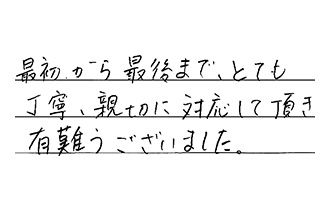 最初から最後まで、とても
丁寧、親切に対応して頂き
有難うございました。